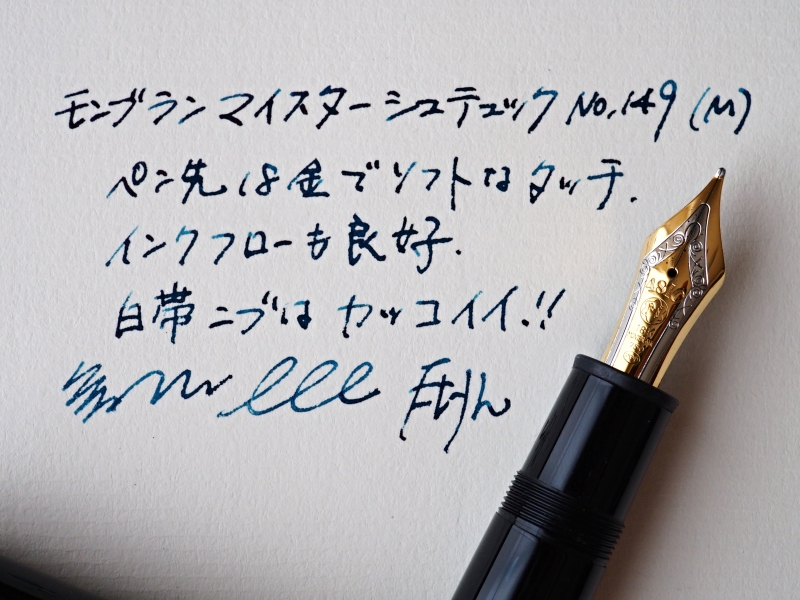 モンブラン マイスターシュテュック No.149 (M)
ペン先は金でソフトなタッチ.
インクフローも良好.
白帯ニブはカッコイイ.!!